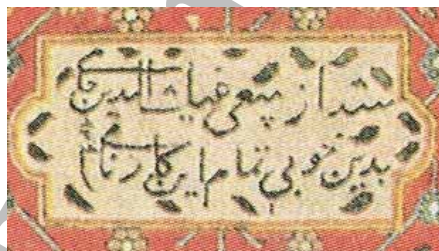 شد از سعی غیاث الدین جامی
بدین خوبی تمام این کار نامی